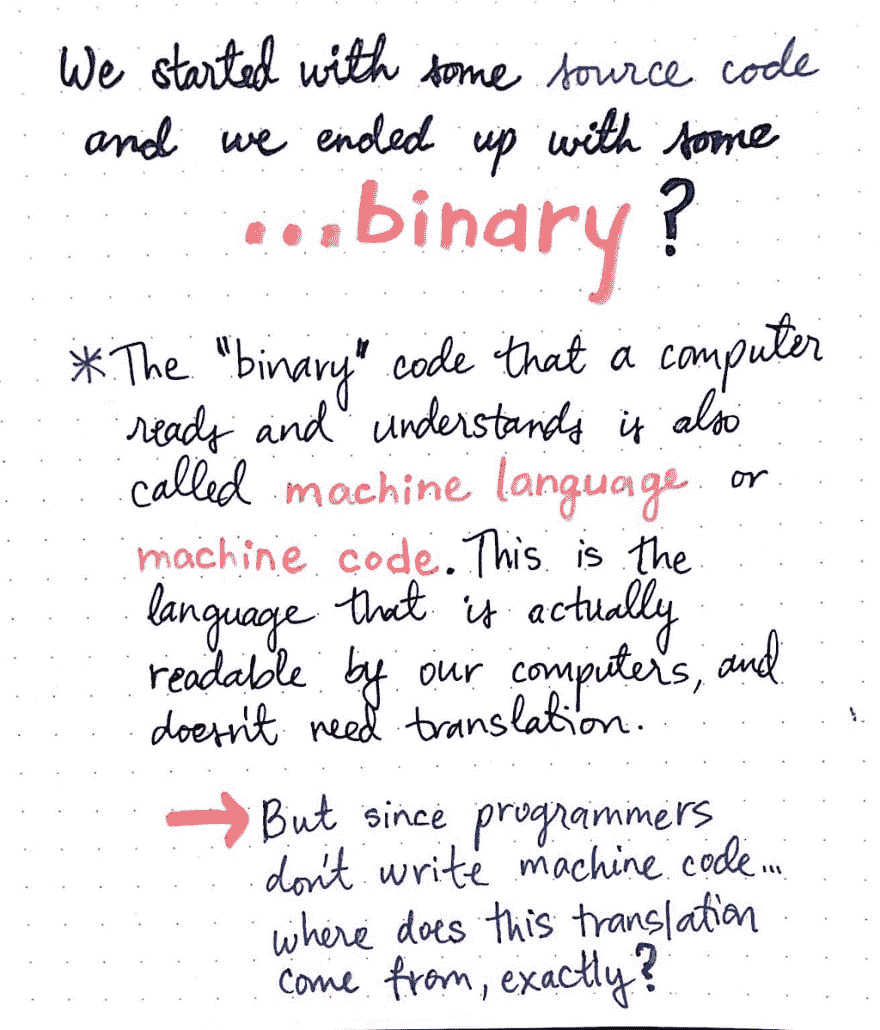 We started with some source code
and we ended up with some
...binary?
*The "binary" code that a computer
reads and understands is also
called machine language or
machine code. This is the
language that is actually
readable by our computers, and
doesn't need translation.
→ But since programmers
don't write machine code...
where does this translation
come from, exactly?